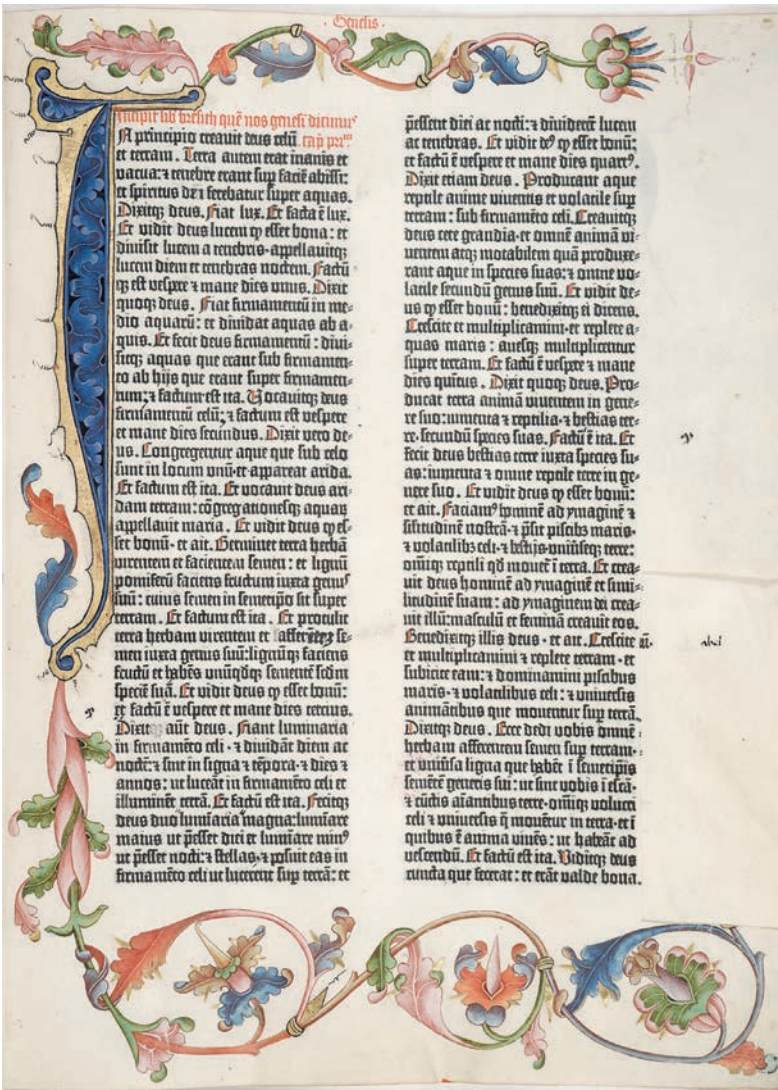 · Genesis ·
Incipit lib bresith quē nos genesim dicimus
In principio creavit deus celū cap̄ prīm
et terram . Terra autem erat inanis et
vacua : ⁊ tenebre erant sup facie abissi :
et spiritus dn̄i ferebatur super aquas .
Dixitqꝫ deus . Fiat lux . Et facta ē lux .
Et vidit deus lucem qꝫ esset bona : et
divisit lucem a tenebris · appellavitqꝫ
lucem diem et tenebras noctem . Factū
qꝫ est vespere ⁊ mane dies unus . Dixit
quoqꝫ deus . Fiat firmamentū in me⸗
dio aquarū : et dividat aquas ab a⸗
quis . Et fecit deus firmamentū : divi⸗
sitqꝫ aquas que erant sub firmamen⸗
to ab hijs que erant super firmamen⸗
tum : ⁊ factum est ita . Vocavitqꝫ deus
firmamentū celū : ⁊ factum est vespere
et mane dies secundus . Dixit vero de⸗
us . Congregentur aque que sub celo
sunt in locum unū · et appareat arida .
Et factum est ita . Et vocavit deus ari⸗
dam terram : cōgregationesqꝫ aquaꝝ
appellavit maria . Et vidit deus qꝫ es⸗
set bonū · et ait . Germinet terra herbā
virentem et facientem semen : et lignū
pomiferū faciens fructum iuxta genꝰ
suū : cuius semen in semetipo sit super
terram . Et factum est ita . Et protulit
terra herbam virentem et se⸗
men iuxta genus suū : lignūqꝫ faciens
fructū et habēs unūqdqꝫ sementē scdm
speciē suā . Et vidit deus qꝫ esset bonū :
et factū ē vespere et mane dies tercius .
Dixit aūt deus . Fiant luminaria
in firmamēto celi · ⁊ dividāt diem ac
noctē : ⁊ sint in signa ⁊ tēpora · ⁊ dies ⁊
annos : ut luceāt in firmamēto celi et
illuminēt terrā . Et factū est ita . Fecitqꝫ
deus duo luminaria magna : luminare
maius ut pesset diei et luminare minꝰ
ut pesset nocti : ⁊ stellas · ⁊ posuit eas in
firmamēto celi ut lucerent sup terrā : et
pessent diei ac nocti : ⁊ dividerēt lucem
ac tenebras . Et vidit deꝰ qꝫ esset bonū :
et factū ē vespere et mane dies quartꝰ .
Dixit etiam deus . Producant aque
reptile anime viventis et volatile sup
terram : sub firmamēto celi . Creavitqꝫ
deus cete grandia · et omnē animā vi⸗
ventem atqꝫ motabilem quā produxe⸗
rant aque in species suas : ⁊ omne vo⸗
latile secundū genus suū . Et vidit de⸗
us qꝫ esset bonū : benedixitqꝫ ei dicens .
Crescite et multiplicamini · et replete a⸗
quas maris : avesqꝫ multiplicentur
super terram . Et factū ē vespere ⁊ mane
dies quītus . Dixit quoqꝫ deus . Pro⸗
ducat terra animā viventem in gene⸗
re suo : iumenta ⁊ reptilia · ⁊ bestias ter⸗
re · secundū species suas . Factū ē ita . Et
fecit deus bestias terre iuxta species su⸗
as : iumenta ⁊ omne reptile terre in ge⸗
nere suo . Et vidit deus qꝫ esset bonū :
et ait . Faciamꝰ hominē ad ymaginē ⁊
silitudinē nostrā · ⁊ psit piscibꝫ maris ·
⁊ volatilibꝫ celi · ⁊ bestijs univseqꝫ terre :
omīqꝫ reptili qd movet ī terra . Et crea⸗
vit deus hominē ad ymaginē et simi⸗
litudinē suam : ad ymaginem dei crea⸗
vit illū : masculū et feminā creavit eos .
Benedixitqꝫ illis deus · et ait . Crescite
et multiplicamini ⁊ replete terram · et
subicite eam : ⁊ dominamini piscibus
maris · ⁊ volatilibus celi : ⁊ universis
animātibus que moventur sup terrā .
Dixitqꝫ deus . Ecce dedi vobis omnē
herbam afferentem semen sup terram ·
et univsa ligna que habēt ī semetipis
sementē generis sui : ut sint vobis ī escā ·
⁊ cūctis aīantibus terre · omīqꝫ volucri
celi ⁊ universis q̄ moventur in terra · et ī
quibus ē anima vivēs : ut habeāt ad
vescendū . Et factū est ita . Viditqꝫ deus
cuncta que fecerat : et erāt valde bona .